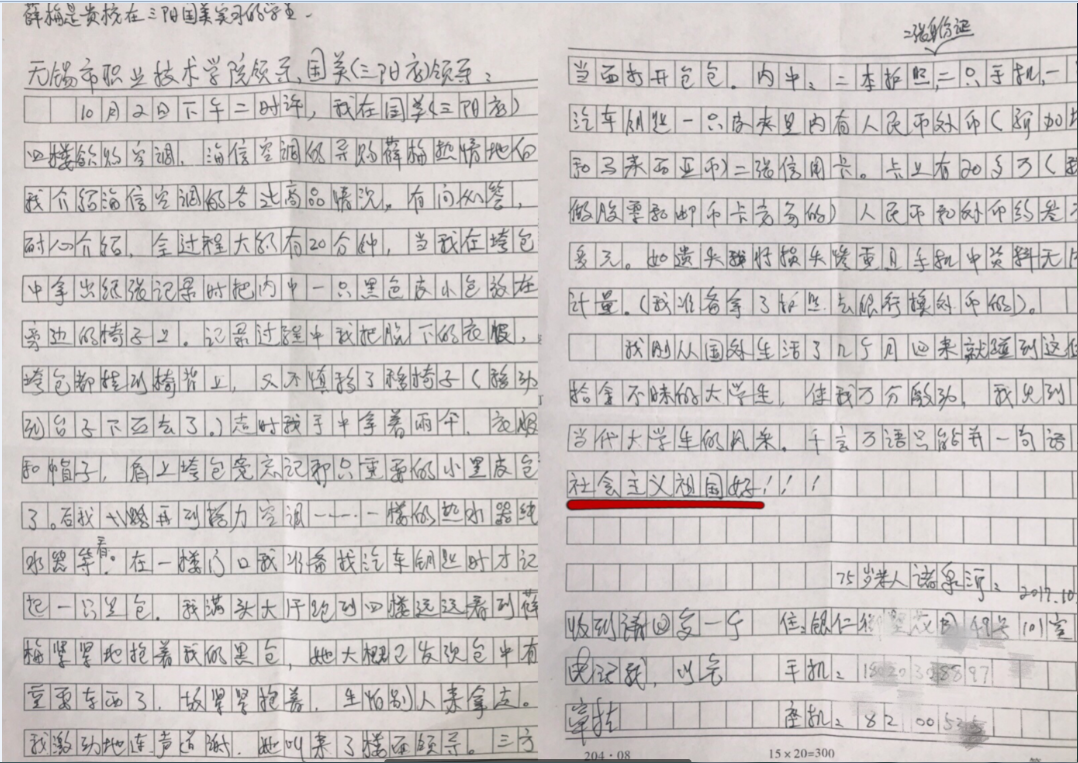 薛梅是贵校在三阳国美实习的学生.
无锡市职业技术学院领导、国美(三阳店)领导:
10月2日下午二时许,我在国美(三阳店)
四楼欲购空调,海信空调的导购薛梅热情地向
我介绍海信空调的各类商品情况,有问必答,
耐心介绍,全过程大约有20分钟,当我在挎包
中拿出纸张记录时把内中一只黑色皮小包放在
旁边的椅子上。记录过程中我把脱下的衣服,
挎包都挂到椅背上,又不慎移了移椅子(移动
到台子下面去了。)走时我手中拿着雨伞、衣服
和帽子,肩上挎包竟忘记那只重要的小黑皮包
了。后我又再到格力空调……一楼的热水器纯
水器等看。在一楼门口我准备找汽车钥匙时才记
起一只黑包。我满头大汗跑到四楼远远看到薛
梅紧紧地抱着我的黑包,她大概已发现包中有
重要东西了,故紧紧抱着,生怕别人来拿走。
我激动地连声道谢,她叫来了楼面领导。三方
二张身份证
当面打开包包。内中:二本护照、二只手机、一
汽车钥匙一只皮夹里内有人民币外币(
和马来西亚币)二张信用卡。卡上有20多万(
做股票和邮币卡交易的)人民币和外币约叁
多元。如遗失损失惨重且手机中资料无
计量。(我准备拿了护照去银行换外币的)。
我刚从国外生活了几个月回来就碰到这
拾拿不昧的大学生,使我万分激动,我见到
当代大学生的风采,千言万语只能并一句话
社会主义祖国好!!!
75岁老人诸泉河: 2017.10
收到请回复一个 住:银仁御墅花园49号101室
电话我,以免 手机:
牵挂 座机:82
204·08 15×20=300